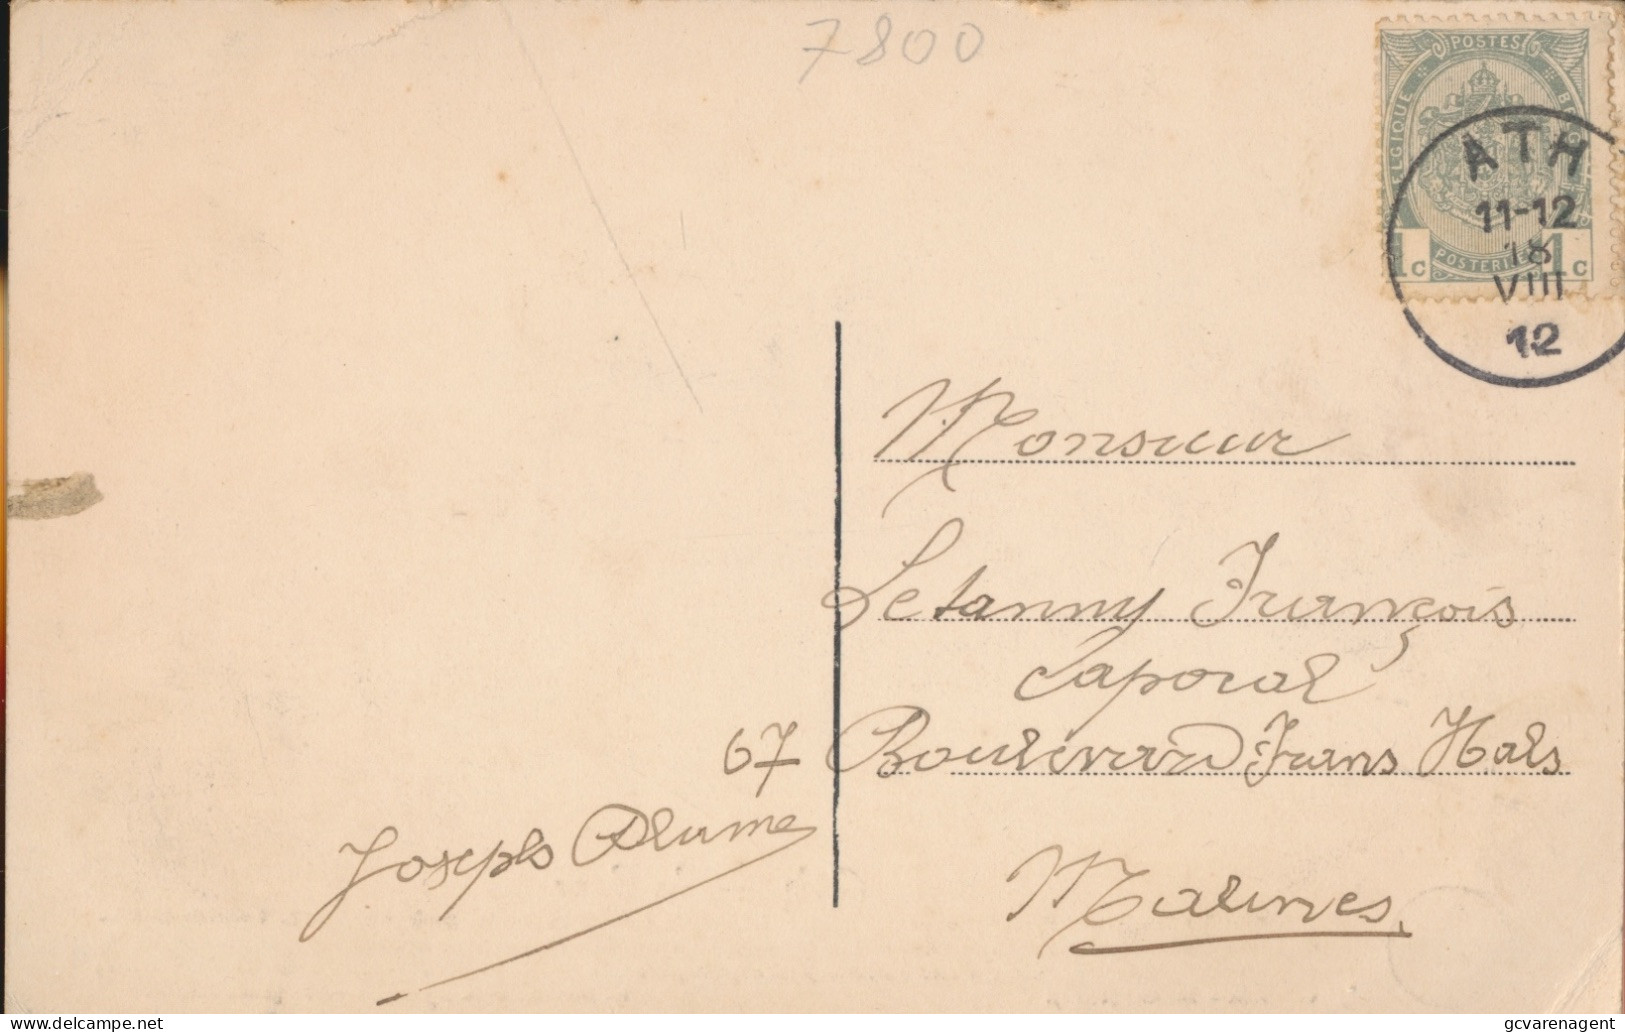 7800
POSTES
BELGIQUE
1c
POSTERIJ
1c
ATH
11-12
18
VIII
12
Monsieur
Letanny François
Caporal
67 Boulevard Frans Hals
Joseph Plume
Malines
delcampe.net
gcvarenagent